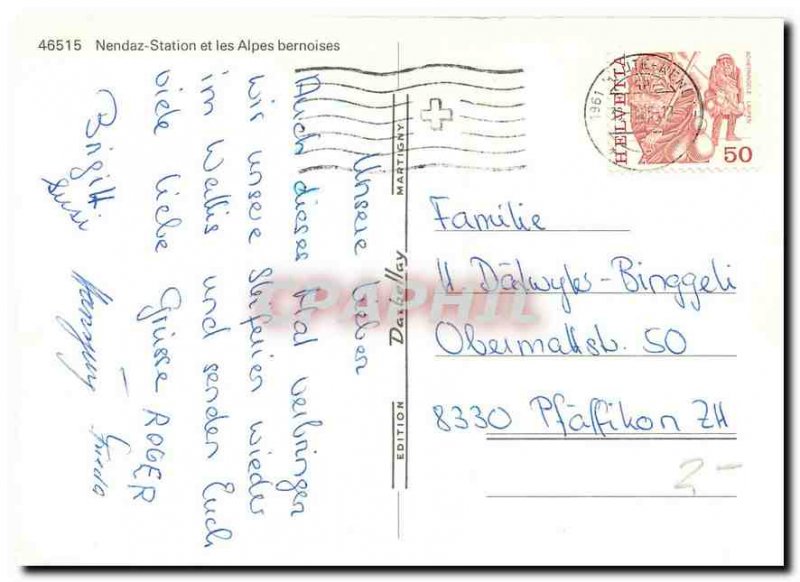 46515 Nendaz-Station et les Alpes bernoises
Unsere Lieben
Auch dieses Mal verbringen
wir unsere Skiferien wieder
im Wallis und senden Euch
viele liebe Grüsse ROGER
Brigitt
Susi
EDITION Darbellay MARTIGNY
1961
HELVETIA
50
Familie
H. Dälwyler-Binggeli
Obermattstr. 50
8330 Pfäffikon ZH
2,-
CPAPHIL